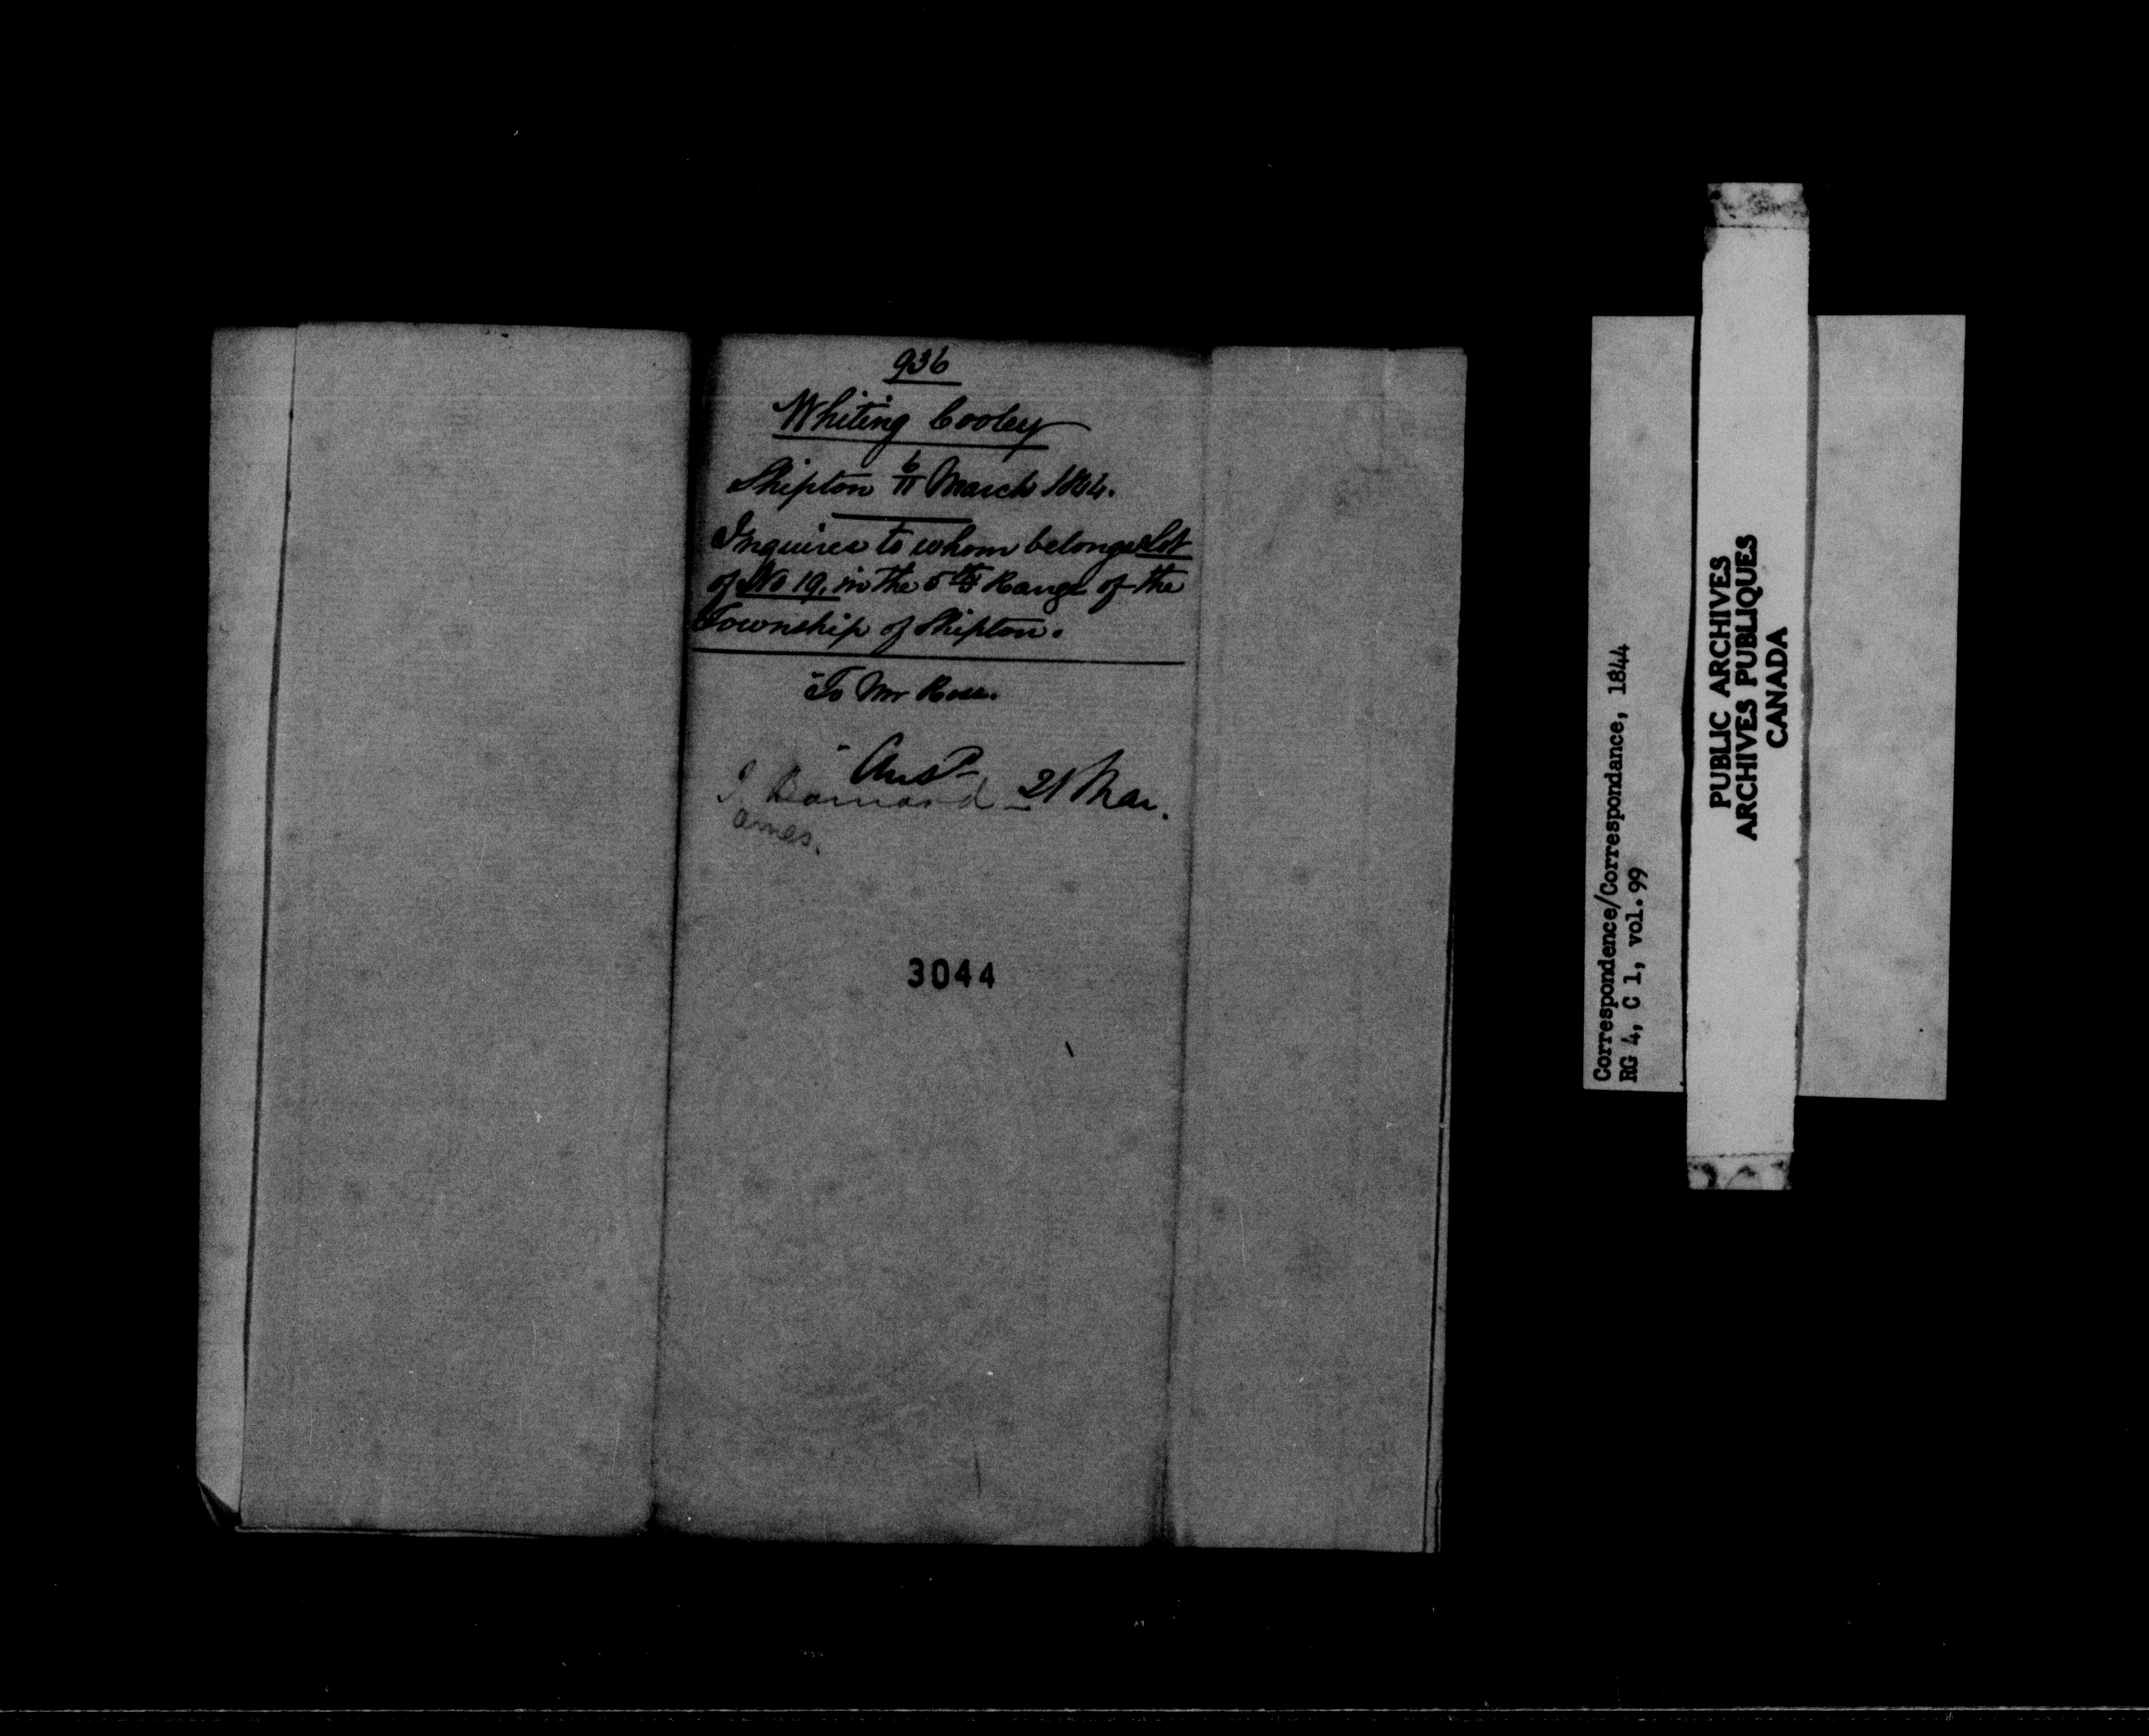 936
Whiting Cooley
Shipton 6/11 March 1844.
Inquires to whom belongs Lot
of No 19, in the 5th Range of the
Township of Shipton.
To Mr Ross.
Ansd
21 Mar.
Barnard
3044
Correspondence/Correspondance, 1844
RG 4, C 1, vol. 99
PUBLIC ARCHIVES
ARCHIVES PUBLIQUES
CANADA